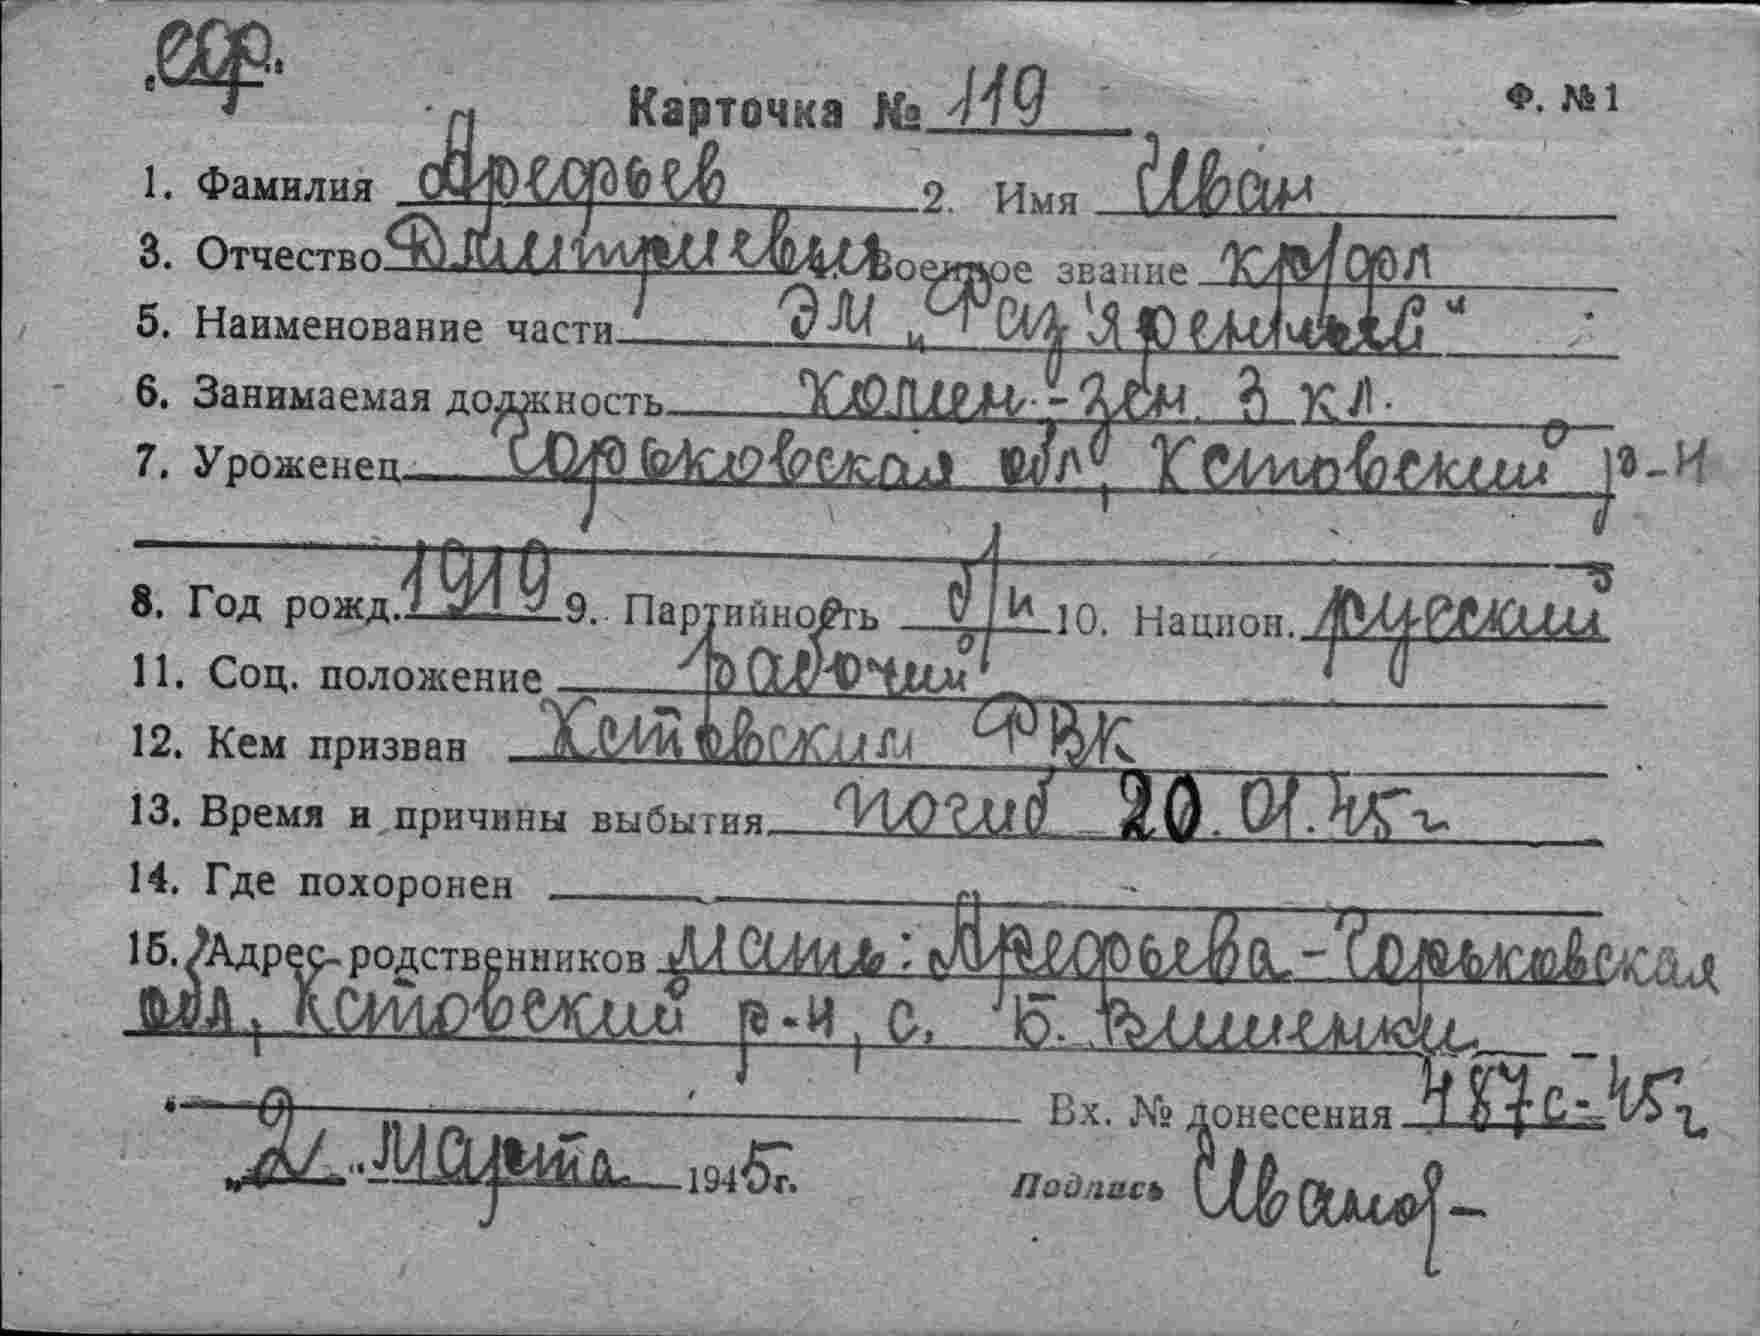 Карточка № 119
Ф. № 1
1. Фамилия Арефьев 2. Имя Иван
3. Отчество Дмитриевич Военное звание кр/фл
5. Наименование части ЭМ „Раз'яренный“
6. Занимаемая должность комен.-зен. 3 кл.
7. Уроженец Горьковская обл, Кстовский р-н
8. Год рожд. 1919 9. Партийность б/п 10. Национ. русский
11. Соц. положение рабочий
12. Кем призван Кстовским РВК
13. Время и причины выбытия погиб 20.01.45 г
14. Где похоронен
15. Адрес родственников мать: Арефьева - Горьковская
обл, Кстовский р-н, с. Б. Вишенки.
Вх. № донесения 487с-45 г
„2“ Марта 1945 г.
Подпись Иванов